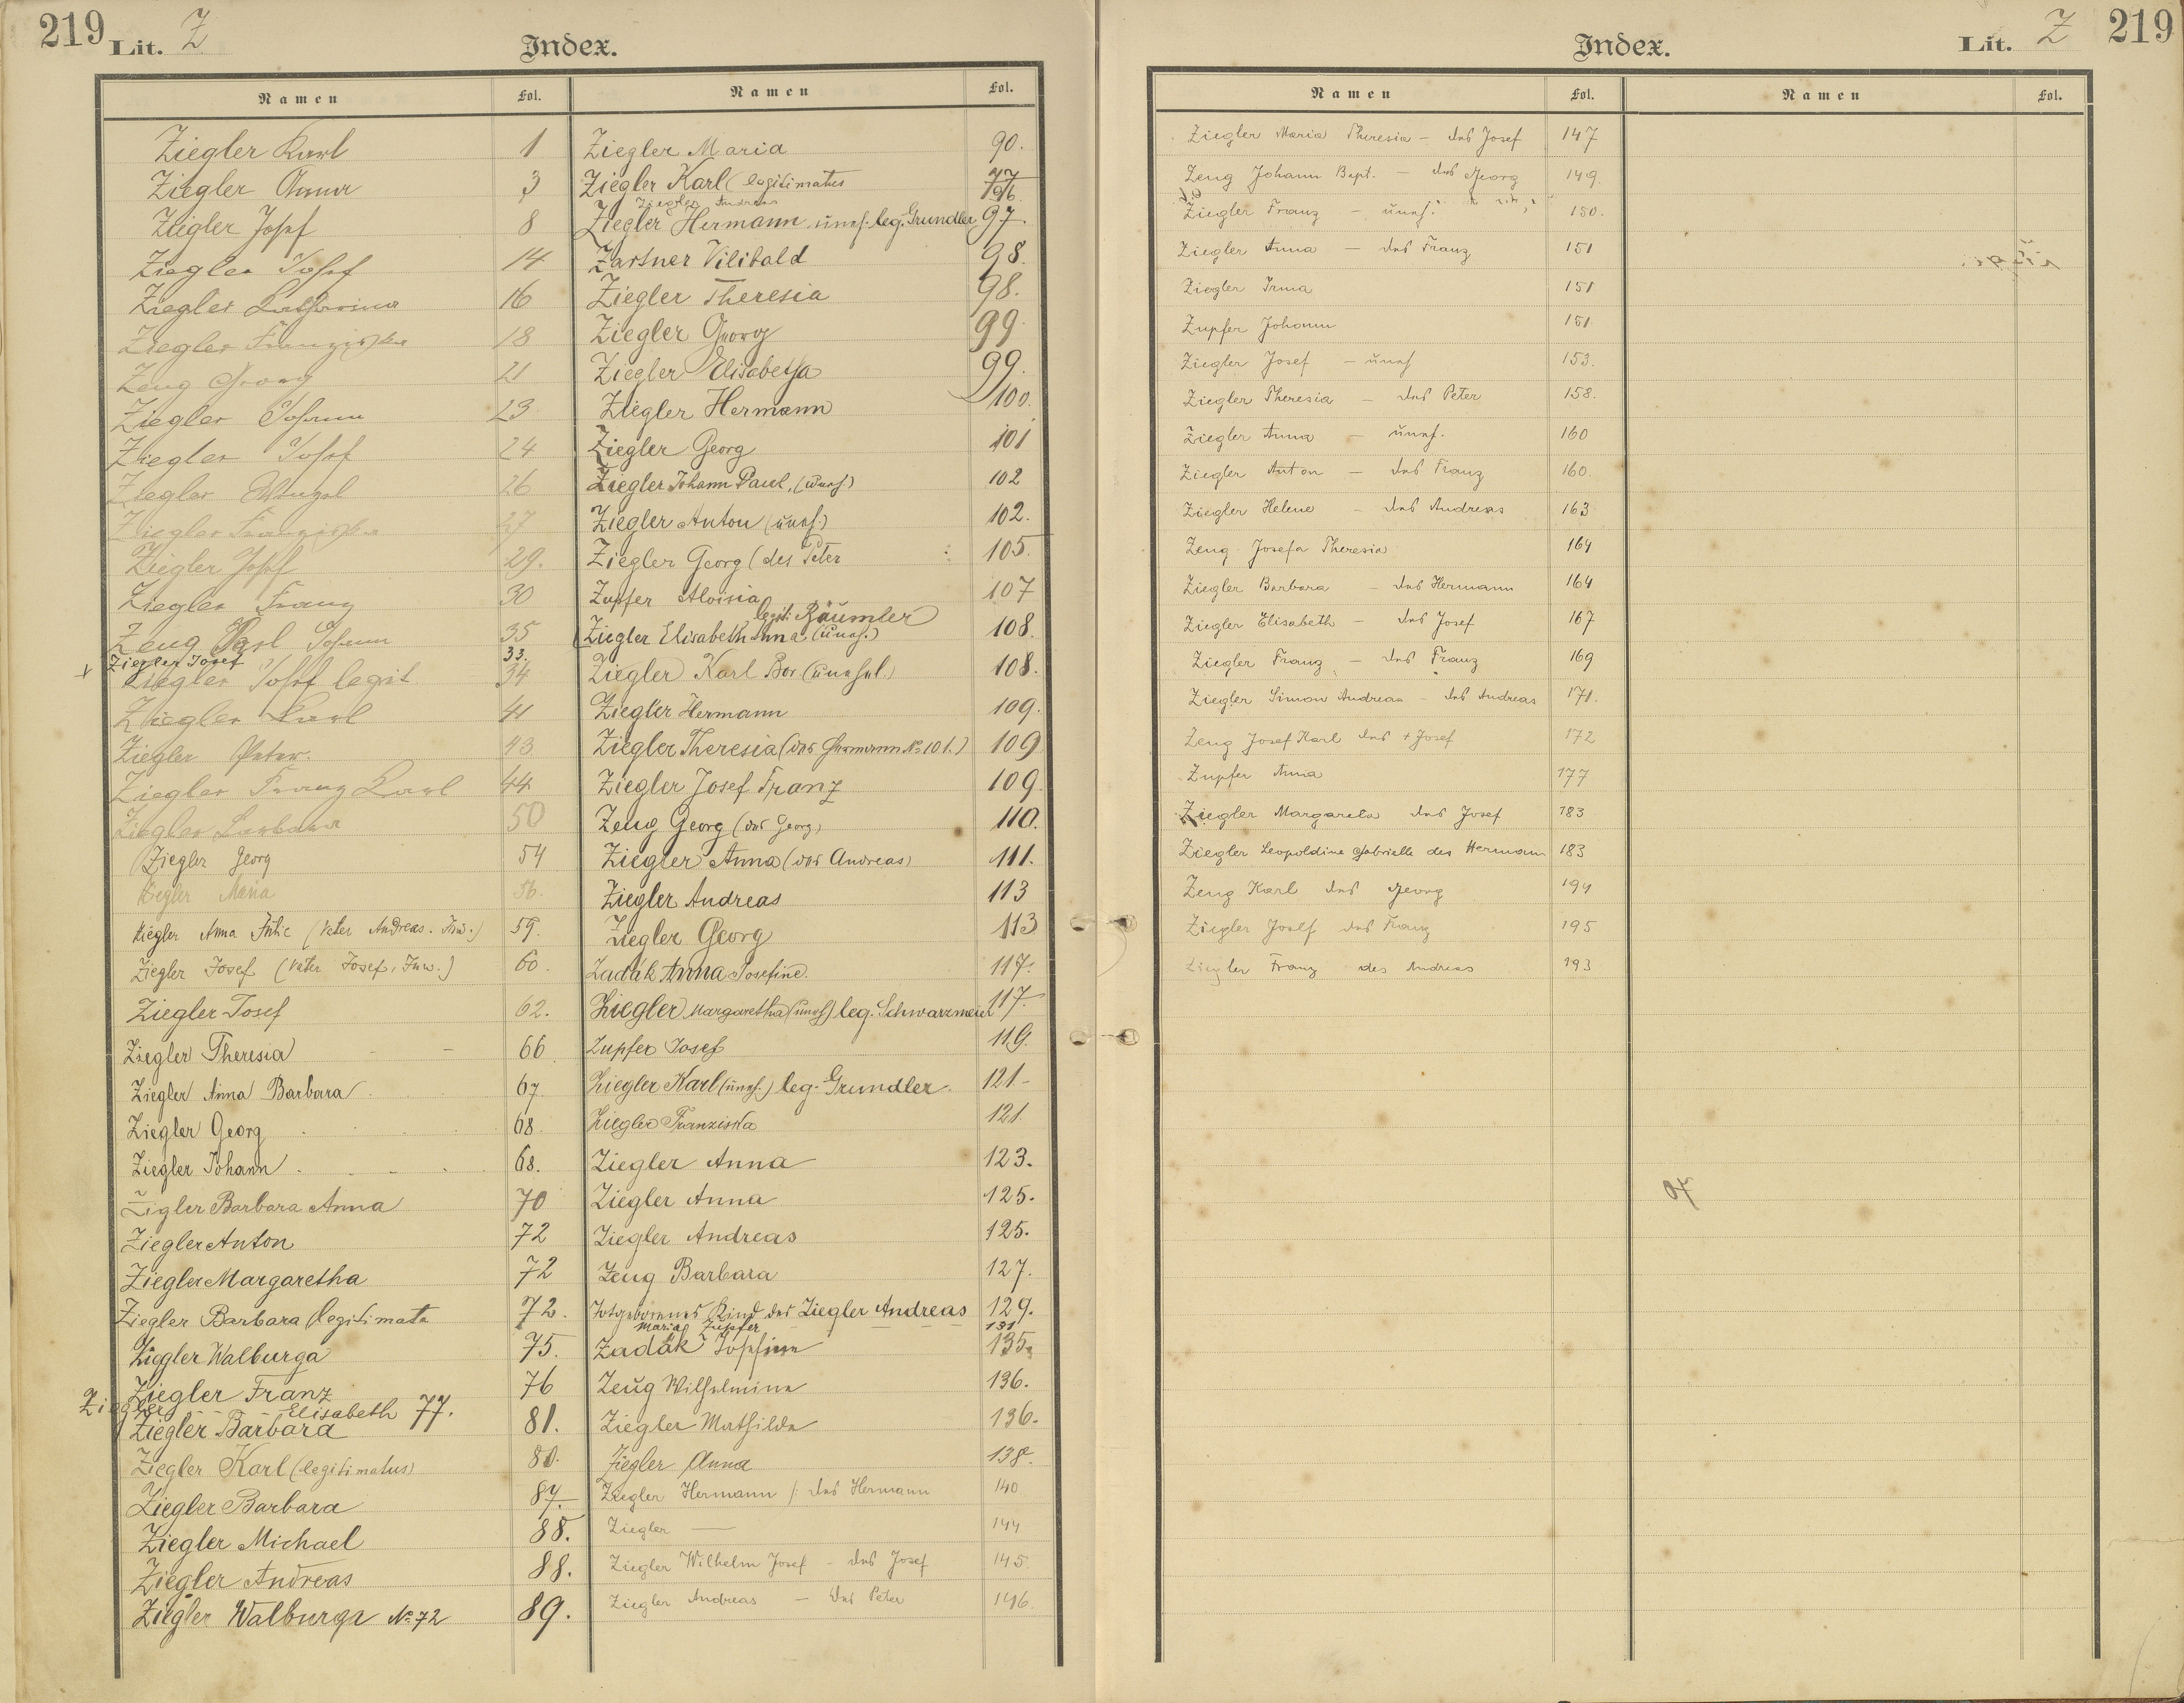 219 Lit. Z
Index.
Namen Fol.
Ziegler Karl 1
Ziegler Anna 3
Ziegler Josef 8
Ziegler Josef 14
Ziegler Katharina 16
Ziegler Franziska 18
Zeug Georg 21
Ziegler Johann 23
Ziegler Josef 24
Ziegler Wenzel 26
Ziegler Franziska 27
Ziegler Josef 29.
Ziegler Franz 30
Zeug Karl Johann 35
x Ziegler Josef 33.
Ziegler Josef legit. 34
Ziegler Karl 41
Ziegler Peter. 43
Ziegler Franz Karl 44
Ziegler Barbara 50
Ziegler Georg 54
Ziegler Maria 56.
Ziegler Anna Julie (Vater Andreas. Inw.) 59.
Ziegler Josef (Vater Josef, Inw.) 60.
Ziegler Josef 62.
Ziegler Theresia 66
Ziegler Anna Barbara 67
Ziegler Georg 68.
Ziegler Johann 68.
Zigler Barbara Anna 70
Ziegler Anton 72
Ziegler Margaretha 72
Ziegler Barbara (legitimata 72.
Ziegler Walburga 75.
Ziegler Franz 76
Ziegler Elisabeth 77.
Ziegler Barbara 81.
Ziegler Karl (legitimatus) 80.
Ziegler Barbara 87.
Ziegler Michael 88.
Ziegler Andreas 88.
Ziegler Walburga No 72 89.
Namen Fol.
Ziegler Maria 90.
Ziegler Karl (legitimatus 77
Ziegler Andreas 96.
Ziegler Hermann unehl. leg. Grundler 97.
Zartner Vilibald 98.
Ziegler Theresia 98.
Ziegler Georg 99.
Ziegler Elisabetha 99.
Ziegler Hermann 100.
Ziegler Georg 101
Ziegler Johann Paul, (uneh.) 102
Ziegler Anton (uneh.) 102.
Ziegler Georg (des Peter 105.
Zupfer Aloisia 107
legit. Räumler
Ziegler Elisabeth Anna (uneh.) 108.
Ziegler Karl Bor. (unehel.) 108.
Ziegler Hermann 109.
Ziegler Theresia (des Hermann No 101.) 109
Ziegler Josef Franz 109.
Zeug Georg (des Georg) 110.
Ziegler Anna (des Andreas) 111.
Ziegler Andreas 113
Ziegler Georg 113
Zadák Anna Josefine. 117.
Ziegler Margaretha (uneh) leg. Schwarzmeier 117.
Zupfer Josef 119.
Ziegler Karl (uneh.) leg. Grundler. 121
Ziegler Franziska 121.
Ziegler Anna 123.
Ziegler Anna 125.
Ziegler Andreas 125.
Zeug Barbara 127.
Totgeborenes Kind des Ziegler Andreas 129.
Maria Zupfer 131
Zadák Josefine 135.
Zeug Wilhelmine 136.
Ziegler Mathilde 136.
Ziegler Anna 138.
Ziegler Hermann /: des Hermann 140
Ziegler — 144
Ziegler Wilhelm Josef - des Josef 145.
Ziegler Andreas — des Peter 146.
Index.
Lit. Z 219
Namen Fol.
Ziegler Maria Theresia — des Josef 147
Zeug Johann Bapt. — des Georg 149.
Ziegler Franz — uneh. 150.
Ziegler Anna — des Franz 151
Ziegler Irma 151
Zupfer Johann 151
Ziegler Josef — uneh 153.
Ziegler Theresia — des Peter 158.
Ziegler Anna — uneh. 160
Ziegler Anton — des Franz 160.
Ziegler Helene — des Andreas 163
Zeug Josefa Theresia 164
Ziegler Barbara — des Hermann 164
Ziegler Elisabeth — des Josef 167
Ziegler Franz — des Franz 169
Ziegler Simon Andreas - des Andreas 171.
Zeug Josef Karl des + Josef 172
Zupfer Anna 177
Ziegler Margareta des Josef 183
Ziegler Leopoldine Gabrielle des Hermann 183
Zeug Karl des Georg 194
Ziegler Josef des Franz 195
Ziegler Franz des Andreas 193
Namen Fol.